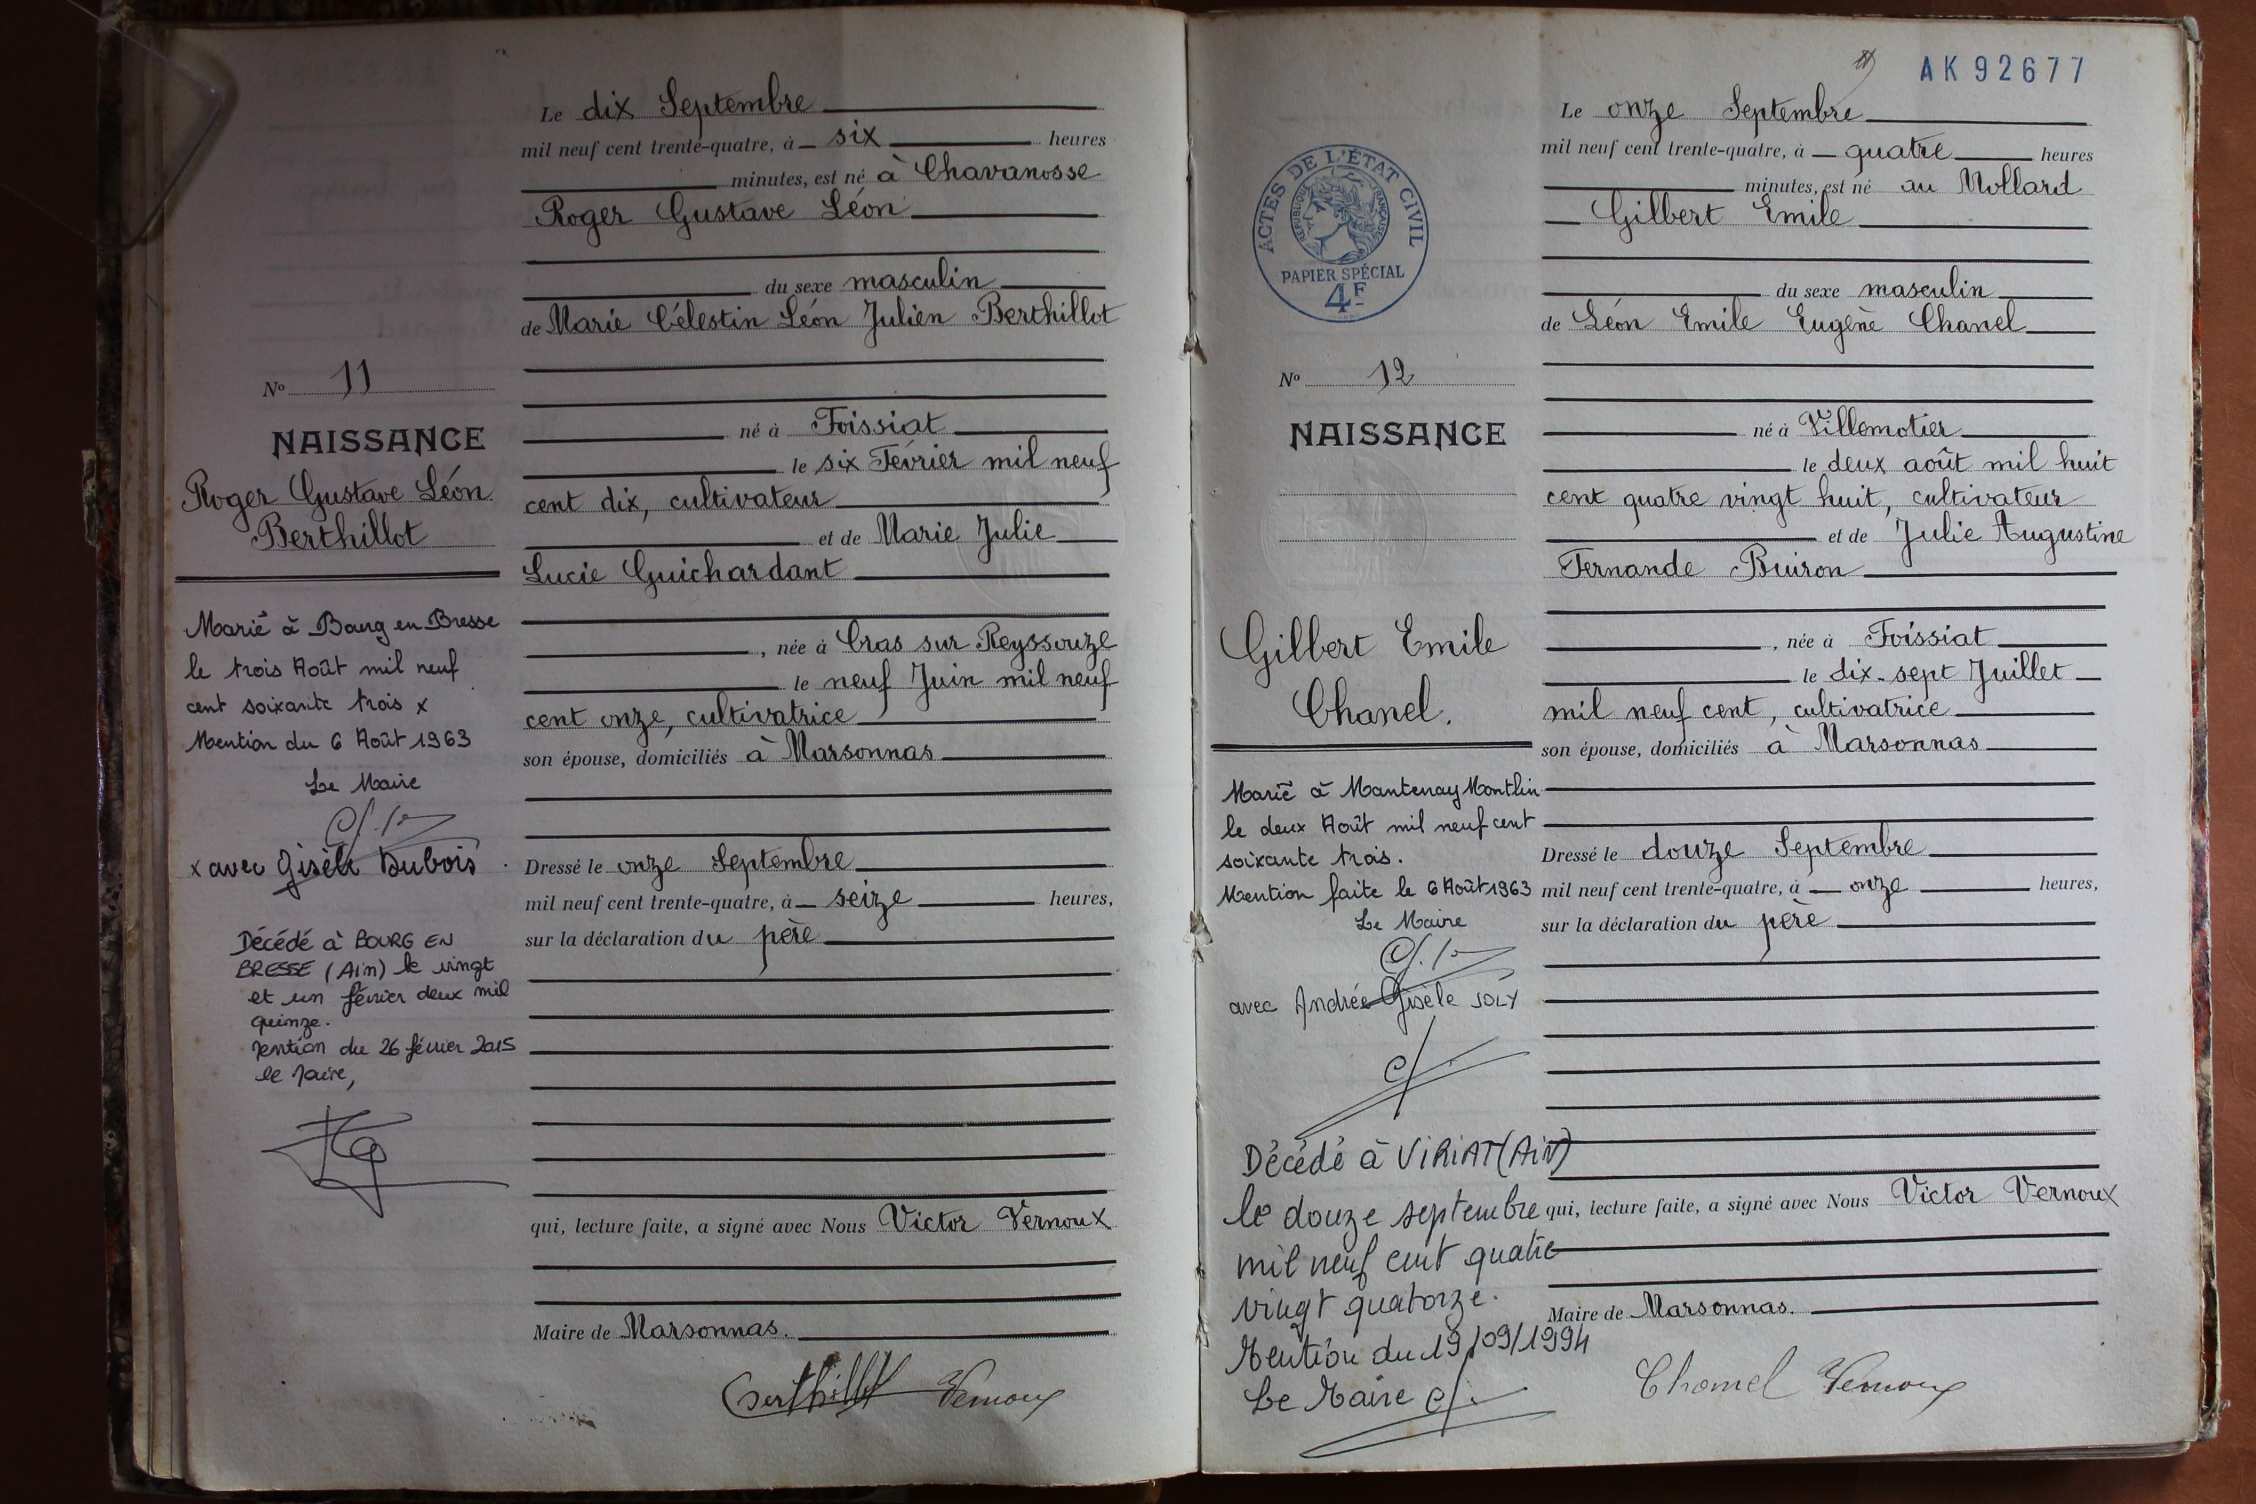 Le dix Septembre
mil neuf cent trente-quatre, à six heures
minutes, est né à Chavanosse
Roger Gustave Léon
du sexe masculin
de Marie Célestin Léon Julien Berthillot
né à Foissiat
le six Février mil neuf
cent dix, cultivateur
et de Marie Julie
Lucie Guichardant
, née à Cras sur Reyssouze
le neuf Juin mil neuf
cent onze, cultivatrice
son épouse, domiciliés à Marsonnas
Dressé le onze Septembre
mil neuf cent trente-quatre, à seize heures,
sur la déclaration du père
qui, lecture faite, a signé avec Nous Victor Vernoux
Maire de Marsonnas.
Berthillot Vernoux
No 11
NAISSANCE
Roger Gustave Léon
Berthillot
Marié à Bourg en Bresse
le trois Août mil neuf
cent soixante trois x
Mention du 6 Août 1963
Le Maire
x avec Gisèle Dubois
Décédé à BOURG EN
BRESSE (Ain) le vingt
et un février deux mil
quinze.
Mention du 26 février 2015
le Maire,
AK92677
ACTES DE L'ÉTAT CIVIL
RÉPUBLIQUE FRANÇAISE
PAPIER SPÉCIAL
4F
Le onze Septembre
mil neuf cent trente-quatre, à quatre heures
minutes, est né au Mollard
Gilbert Emile
du sexe masculin
de Léon Emile Eugène Chanel
né à Villemotier
le deux août mil huit
cent quatre vingt huit, cultivateur
et de Julie Augustine
Fernande Buiron
, née à Foissiat
le dix-sept Juillet
mil neuf cent, cultivatrice
son épouse, domiciliés à Marsonnas
Dressé le douze Septembre
mil neuf cent trente-quatre, à onze heures,
sur la déclaration du père
qui, lecture faite, a signé avec Nous Victor Vernoux
Maire de Marsonnas.
Chanel Vernoux
No 12
NAISSANCE
Gilbert Emile
Chanel.
Marié à Mantenay Montlin
le deux Août mil neuf cent
soixante trois.
Mention faite le 6 Août 1963
Le Maire
avec Andrée Gisèle JOLY
Décédé à VIRIAT (AIN)
le douze septembre
mil neuf cent quatre
vingt quatorze.
Mention du 19/09/1994
Le Maire